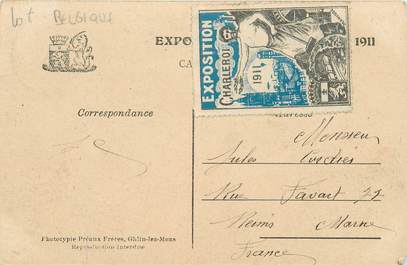 Lot BELGIQUE
EXPO 1911
CA
EXPOSITION
CHARLEROI
1911
Correspondance
Monsieur
Jules
Rue Favart 27
Reims Marne
France
Phototypie Préaux Frères, Ghlin-lez-Mons
Reproduction Interdite